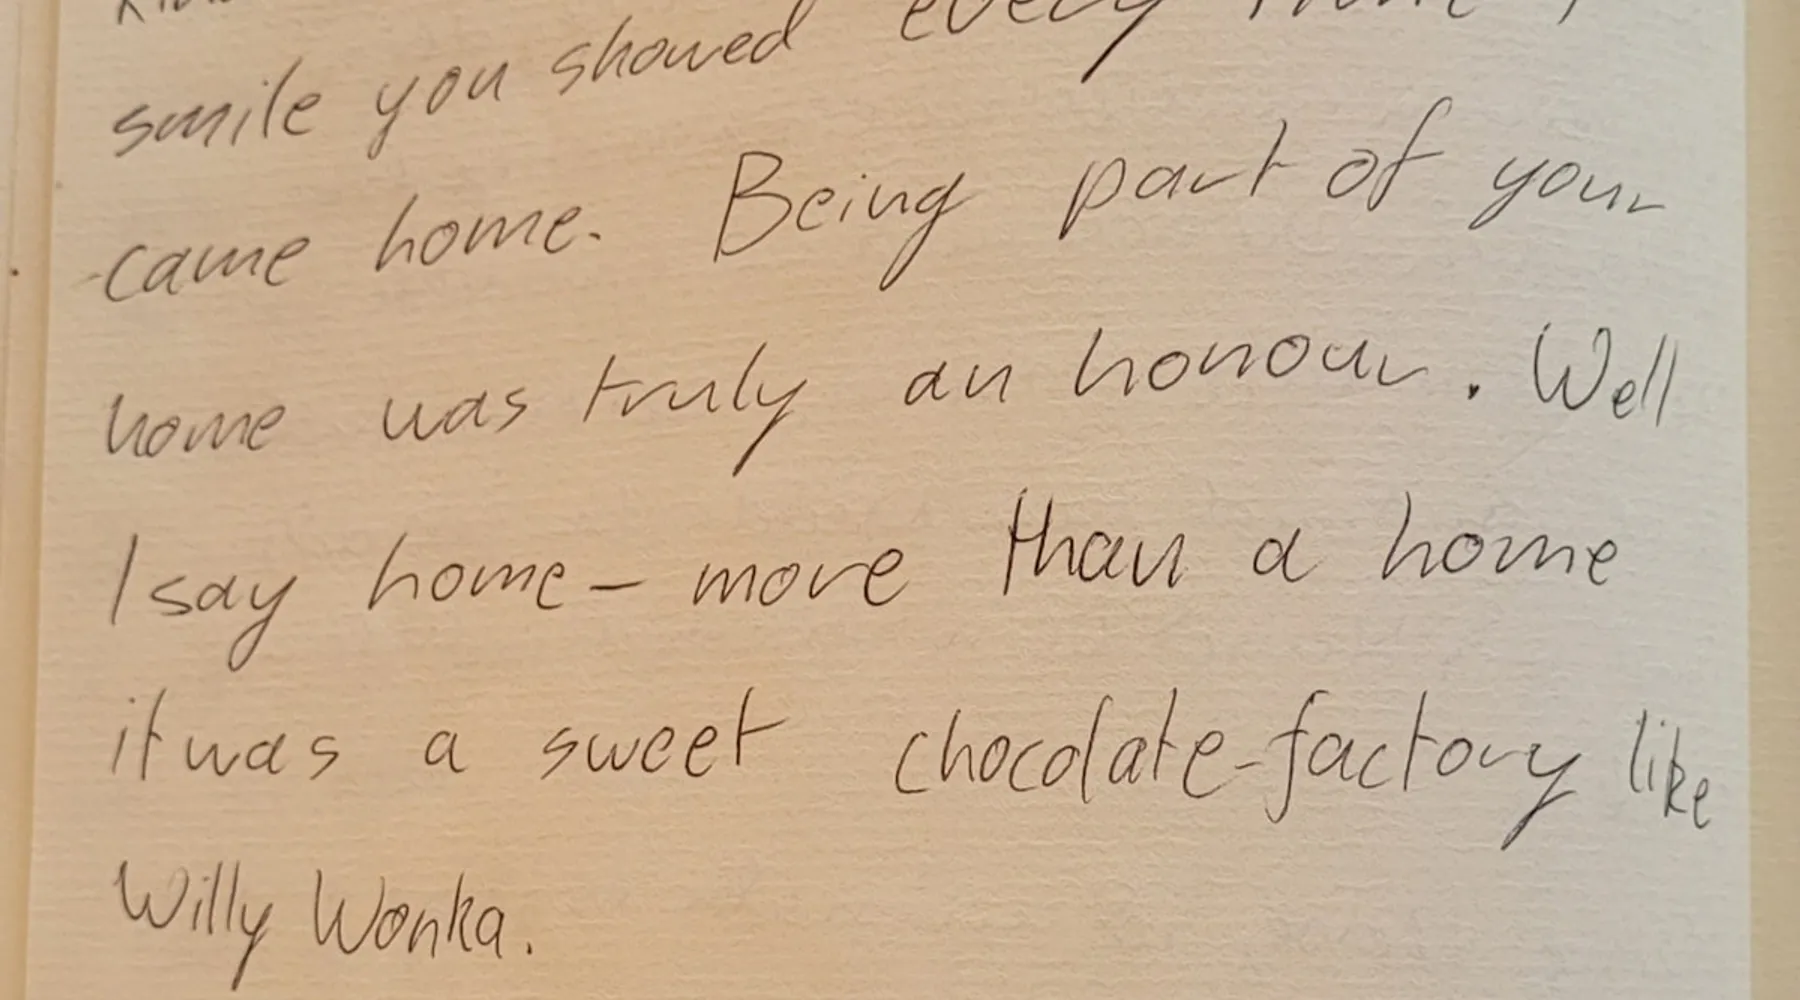 smile you showed every time I
came home. Being part of your
home was truly an honour. Well
I say home - more than a home
it was a sweet chocolate-factory like
Willy Wonka.